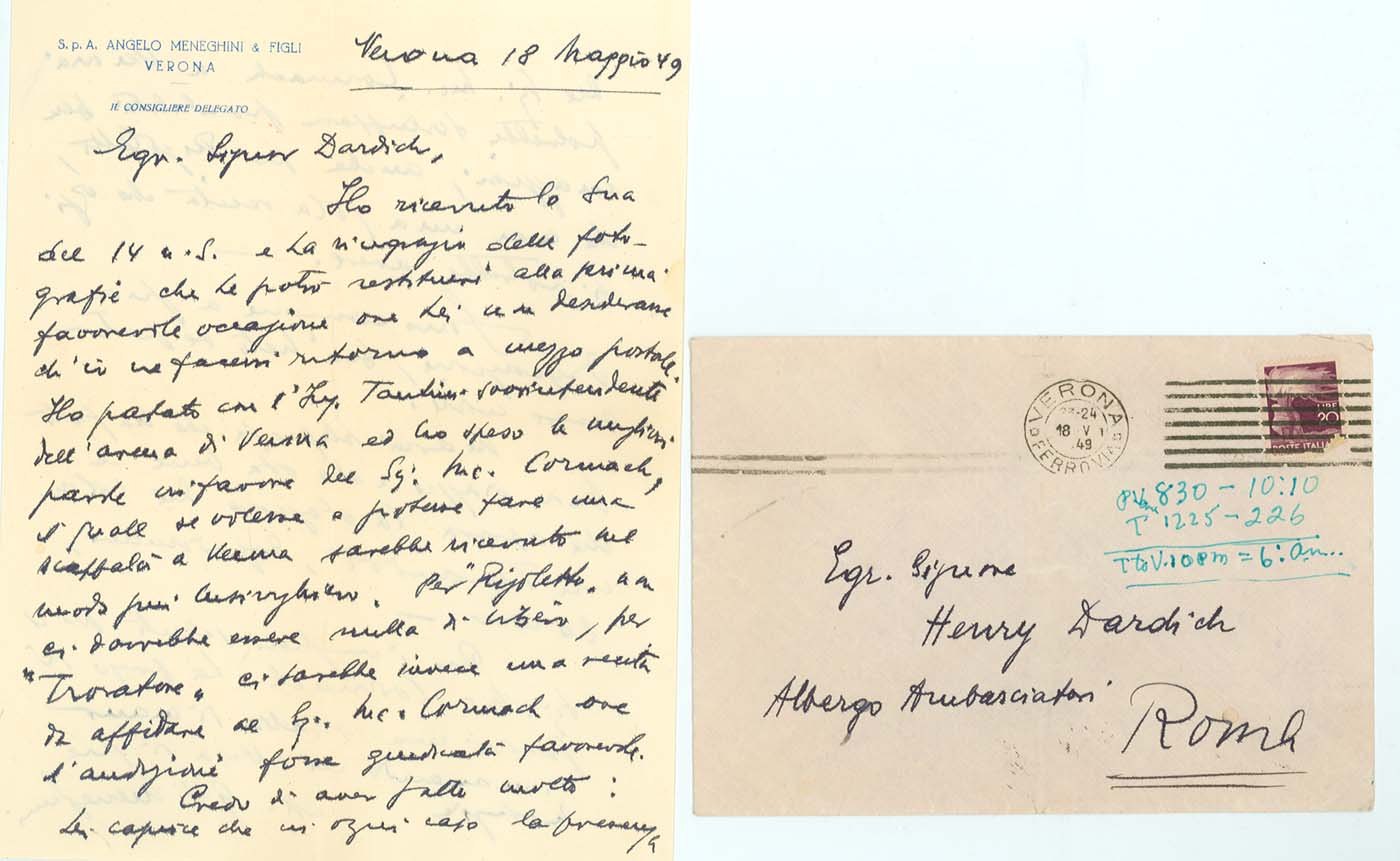 S.p.A. ANGELO MENEGHINI & FIGLI
VERONA
IL CONSIGLIERE DELEGATO
Verona 18 Maggio 49
Egr. Signor Dardich,
Ho ricevuto la Sua
del 14 u.s. e La ringrazio delle foto-
grafie che Le potrò restituire alla prima
favorevole occasione ove Lei non desiderasse
ch'io ne facessi ritorno a mezzo postale.
Ho parlato con l'Ing. Tantini sovrintendente
dell'arena di Verona ed ho speso le migliori
parole in favore del Sig. Mc. Cormach,
il quale se volesse e potesse fare una
scappata a Verona sarebbe ricevuto nel
modo più lusinghiero. Per "Rigoletto" non
ci dovrebbe essere nulla di libero, per
"Trovatore" ci sarebbe invece una recita
da affidare al Sig. Mc. Cormach ove
l'audizione fosse giudicata favorevole.
Credo di aver fatto molto:
Lei capisce che in ogni caso la presenza
VERONA
23-24
18 V
49
FERROVIA
LIRE
20
POSTE ITALIA
830 - 10:10
T 1225 - 226
T to V. 10 pm = 6:
Egr. Signore
Henry Dardich
Albergo Ambasciatori
Roma